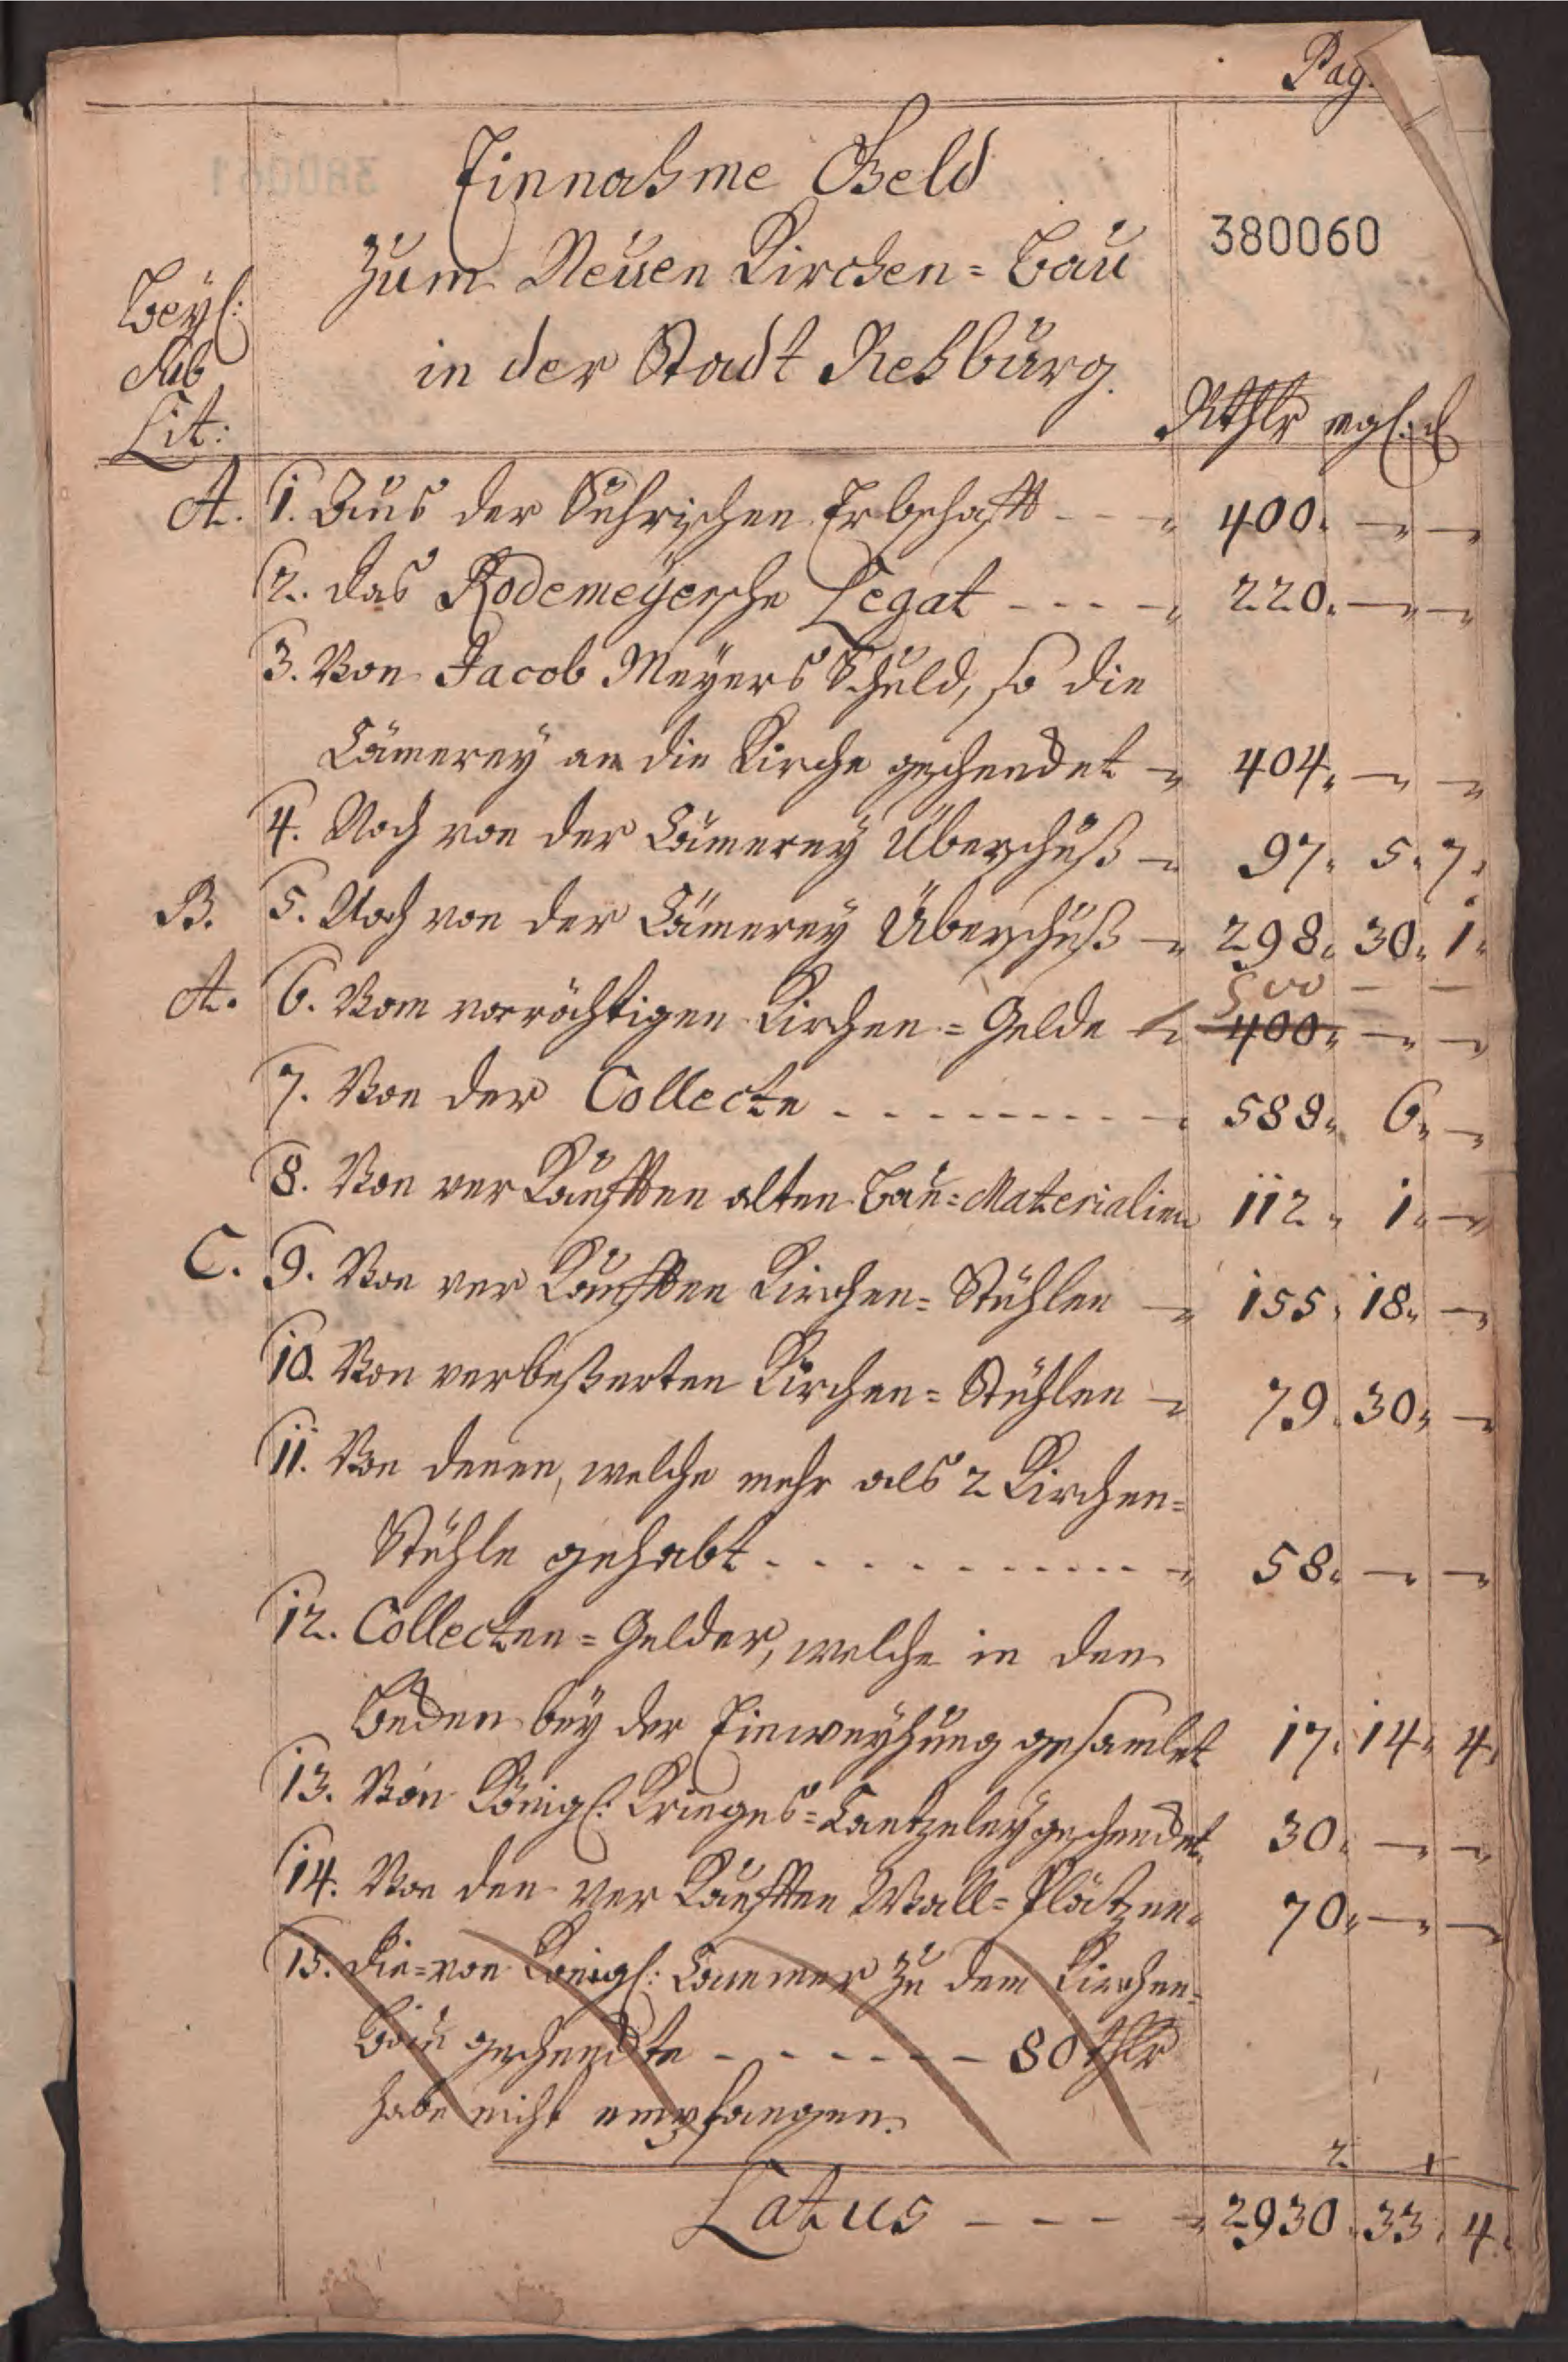 Pag.
Einnahme Geld
zum Neuen Kirchen=Bau
in der Stadt Rehburg.
380060
Beyl:
sub
Lit:
Rthlr mgl: d
A. 1. Aus der Suhrischen Erbschafft - - - 400. — —
2. das Rodemeyersche Legat - - - - 220. — —
3. Von Jacob Meyers Schuld, so die
Cämerey an die Kirche geschencket 404. — —
4. Noch von der Cämerey Überschuß 97. 5. 7.
B. 5. Noch von der Cämerey Überschuß 298. 30. 1.
500 — —
A. 6. Vom vorräthigen Kirchen=Gelde 400. — —
7. Von der Collecte - - - - - - - - - 588. 6. —
8. Von verkaufften alten Bau=Materialien 112. 1. —
C. 9. Von verkaufften Kirchen=Stühlen 155. 18. —
10. Von verbeßerten Kirchen=Stühlen 79. 30. —
11. Von denen, welche mehr als 2 Kirchen=
Stühle gehabt - - - - - - - - - - - 58. — —
12. Collecten=Gelder, welche in den
Becken bey der Einweyhung gesamlet 17. 14. 4.
13. Von Königl: Krieges=Cantzeley geschencket 30. — —
14. Von den verkaufften Wall=Plätzen 70. — —
15. die=von Königl: Cammer zu dem Kirchen=
Bau geschenckte - - - - - - 80 thlr
habe nicht empfangen.
2 1
Latus - - - - 2930. 33. 4.